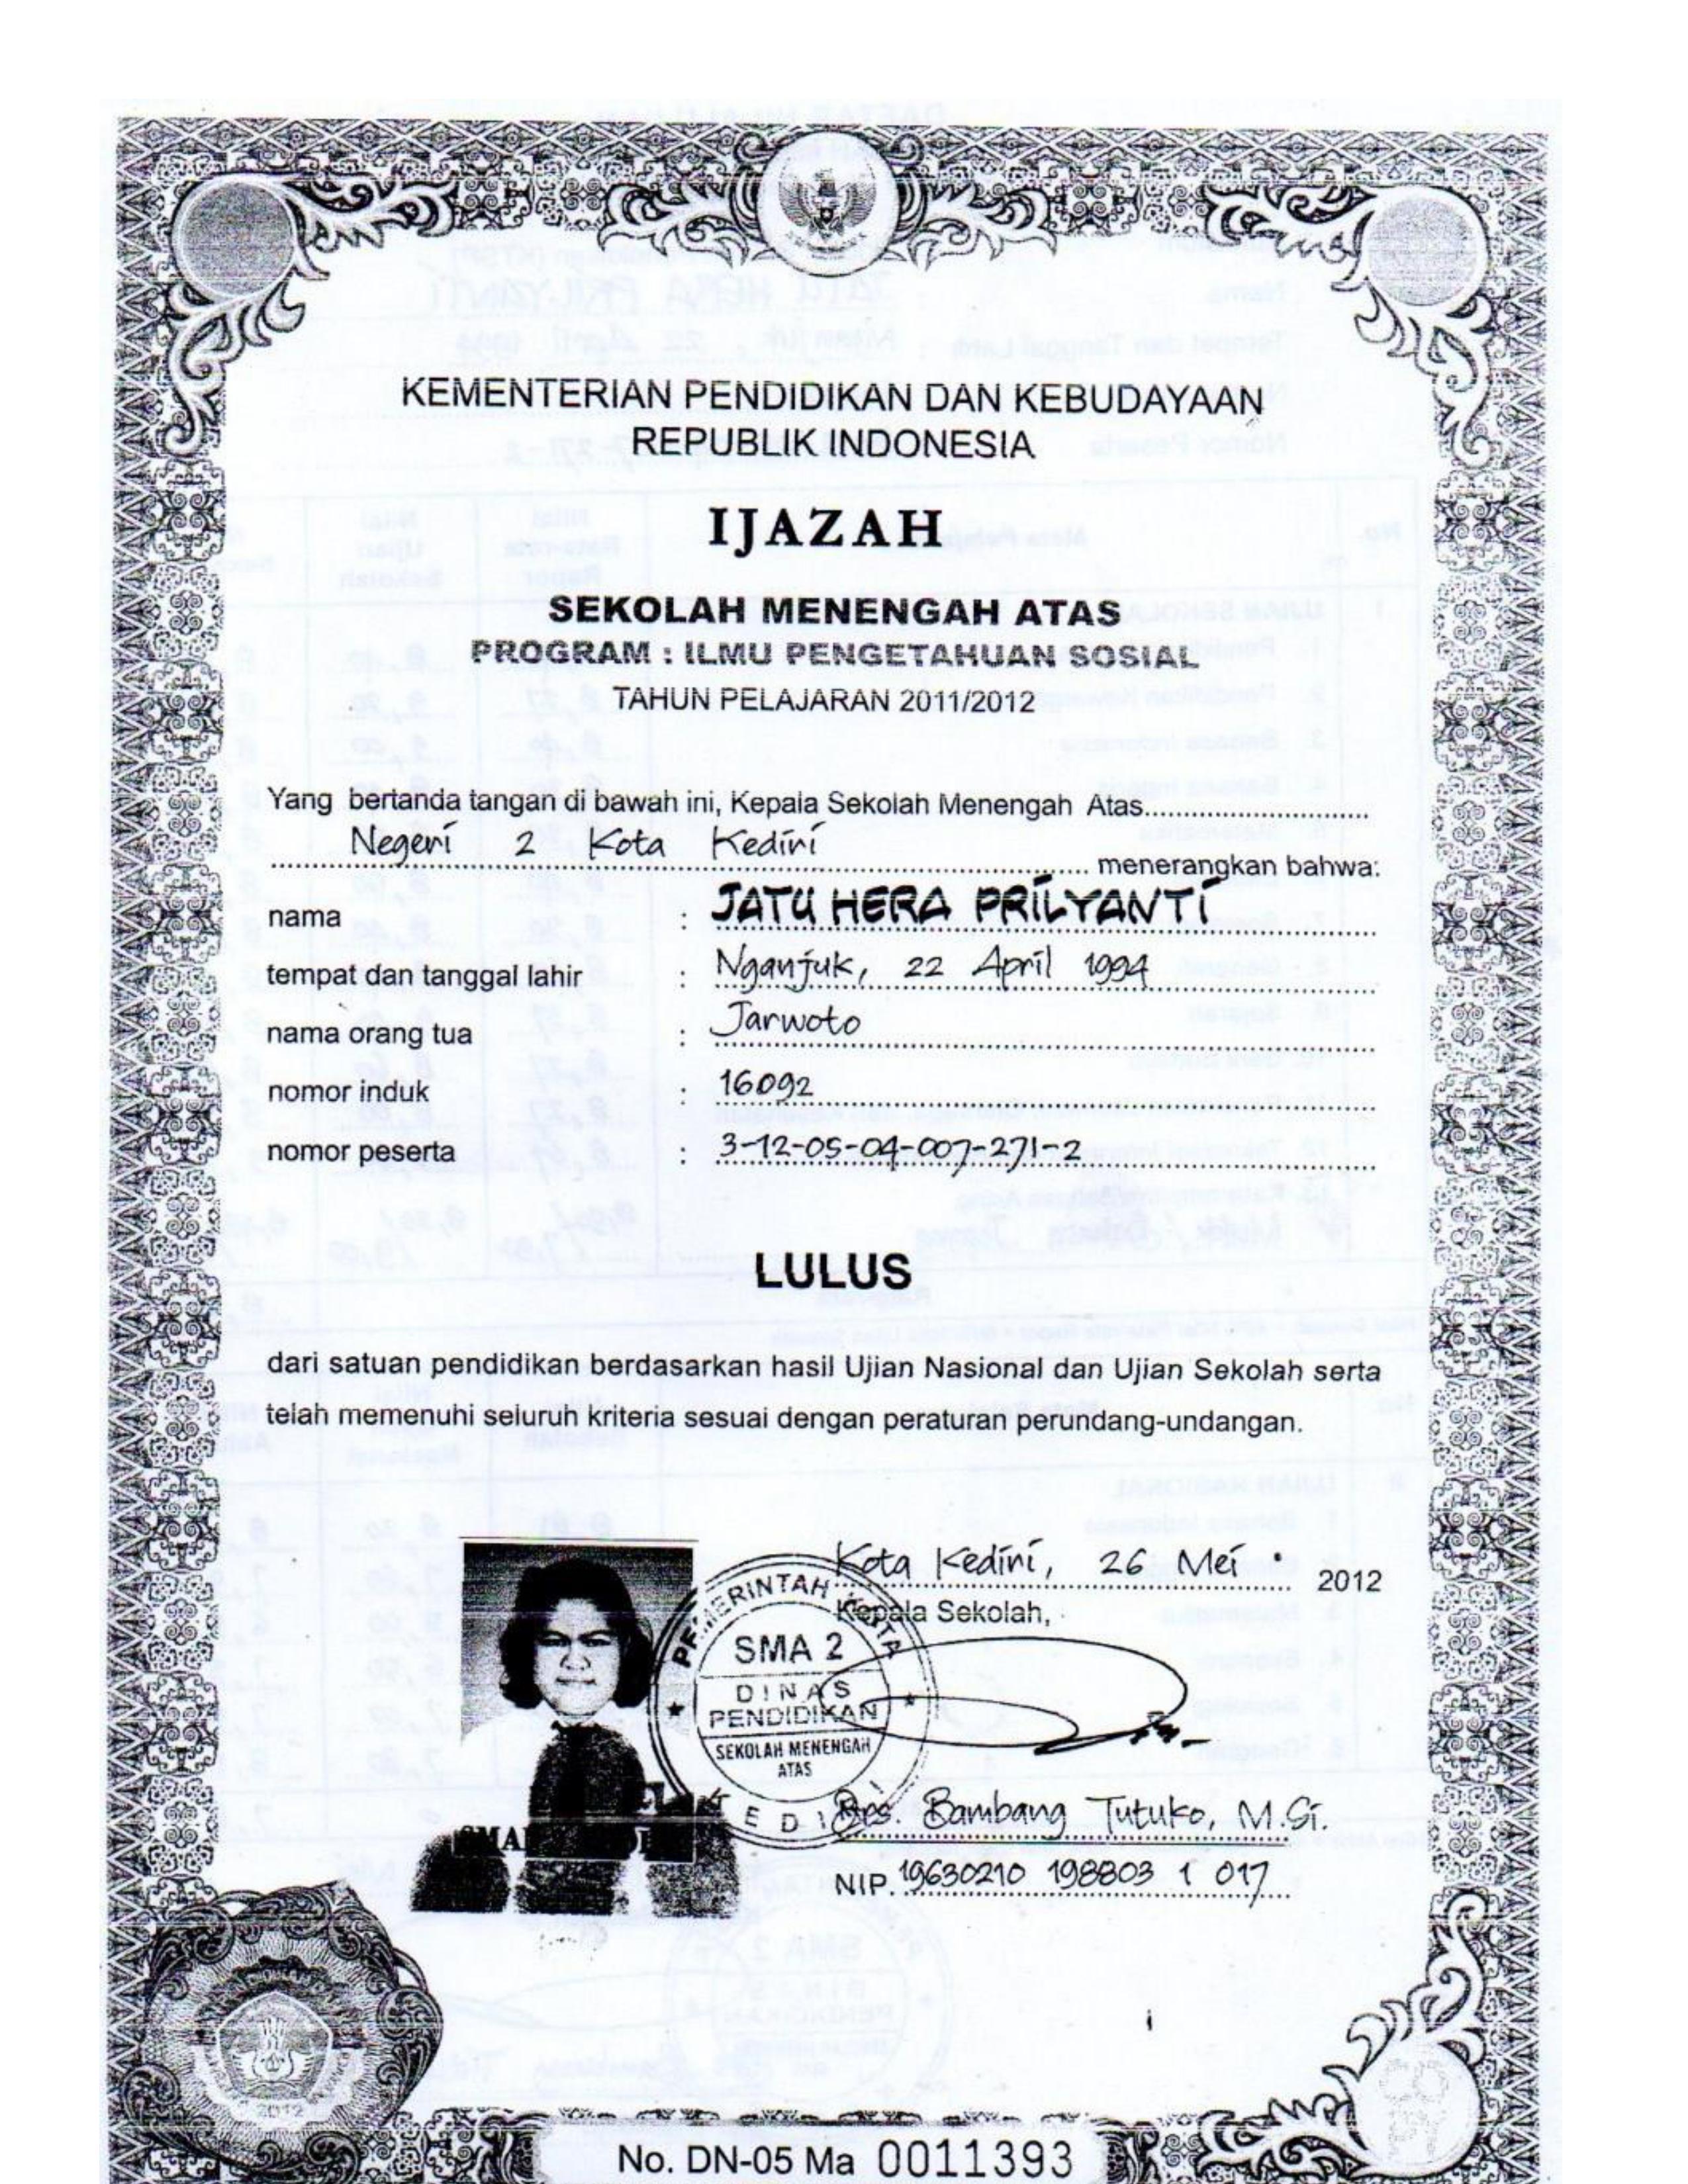 KEMENTERIAN PENDIDIKAN DAN KEBUDAYAAN
REPUBLIK INDONESIA
IJAZAH
SEKOLAH MENENGAH ATAS
PROGRAM : ILMU PENGETAHUAN SOSIAL
TAHUN PELAJARAN 2011/2012
Yang bertanda tangan di bawah ini, Kepala Sekolah Menengah Atas
Negeri 2 Kota Kediri menerangkan bahwa:
nama : JATU HERA PRILYANTI
tempat dan tanggal lahir : Nganjuk, 22 April 1994
nama orang tua : Jarwoto
nomor induk : 16092
nomor peserta : 3-12-05-04-007-271-2
LULUS
dari satuan pendidikan berdasarkan hasil Ujian Nasional dan Ujian Sekolah serta
telah memenuhi seluruh kriteria sesuai dengan peraturan perundang-undangan.
Kota Kediri, 26 Mei 2012
Kepala Sekolah,
PEMERINTAH KOTA
SMA 2
DINAS
PENDIDIKAN
SEKOLAH MENENGAH
ATAS
KEDIRI
Drs. Bambang Tutuko, M.Si.
NIP. 19630210 198803 1 017
2012
No. DN-05 Ma 0011393